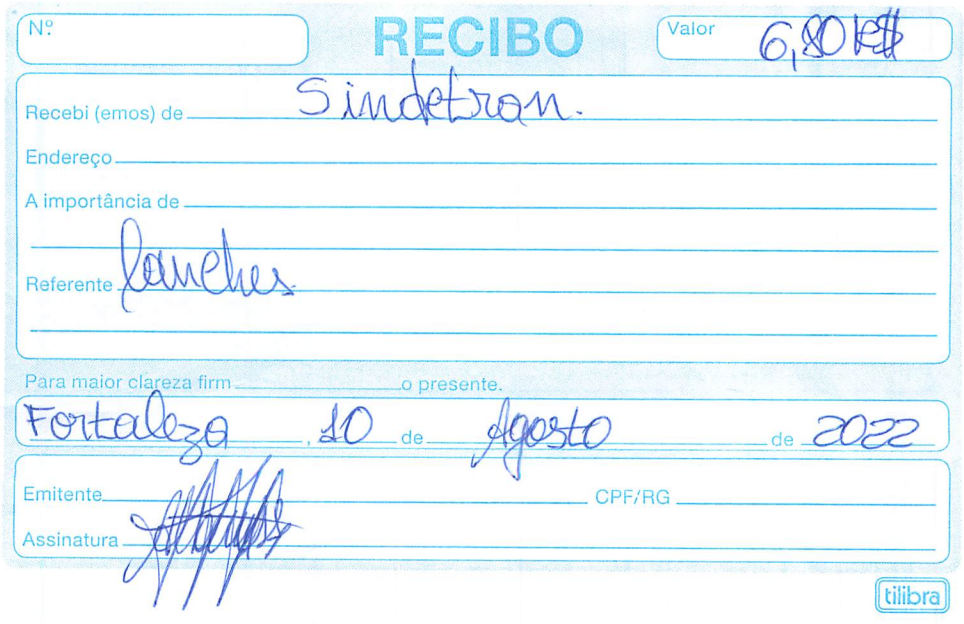 Nº RECIBO Valor 6,80 R$
Recebi (emos) de Sindetran.
Endereço
A importância de
Referente lanches
Para maior clareza firm o presente.
Fortaleza, 10 de Agosto de 2022
Emitente CPF/RG
Assinatura
tilibra